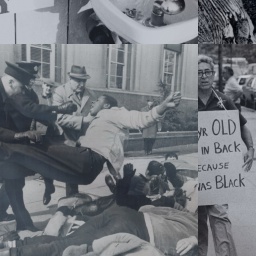 YR OLD
IN BACK
ECAUSE
WAS BLACK